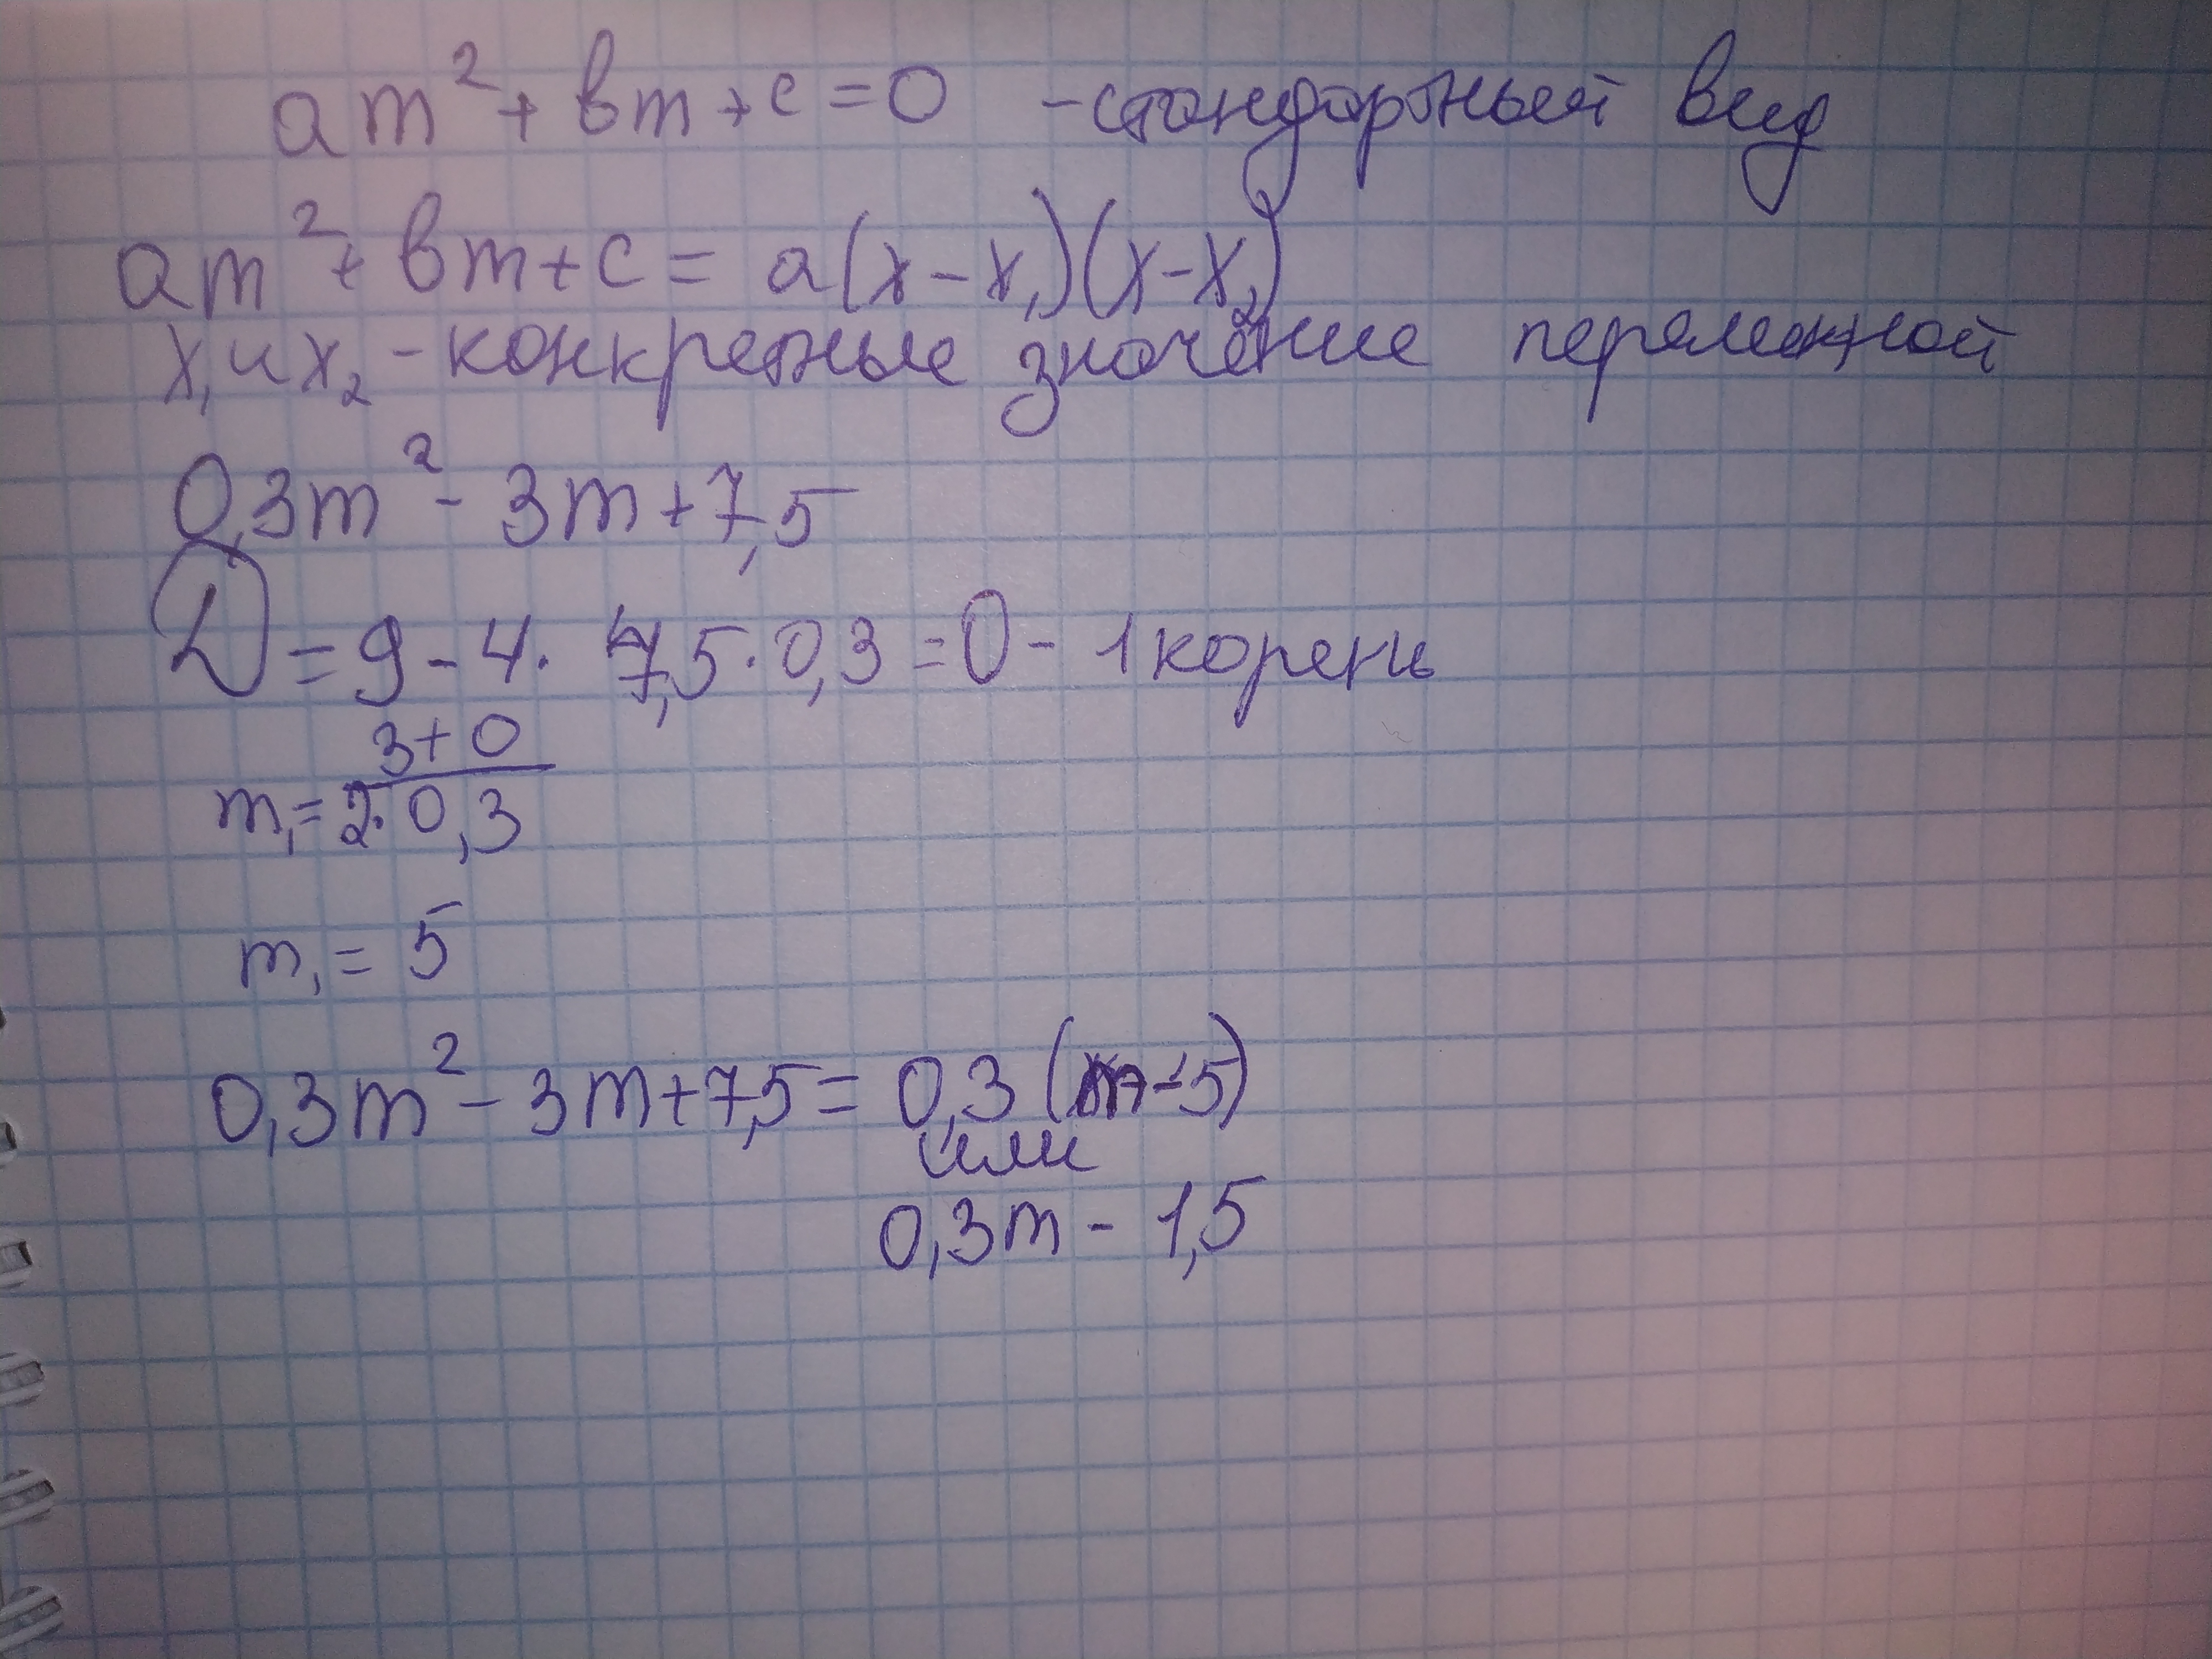 am² + вm + c = 0 - стандартный вид
am² + вm + c = a(x - x₁)(x - x₂)
x₁ и x₂ - конкретные значение переменной
0,3m² - 3m + 7,5
D = 9 - 4 · 7,5 · 0,3 = 0 - 1 корень
m₁ = (3 + 0)/(2 · 0,3)
m₁ = 5
0,3m² - 3m + 7,5 = 0,3 (m - 5)
или
0,3m - 1,5